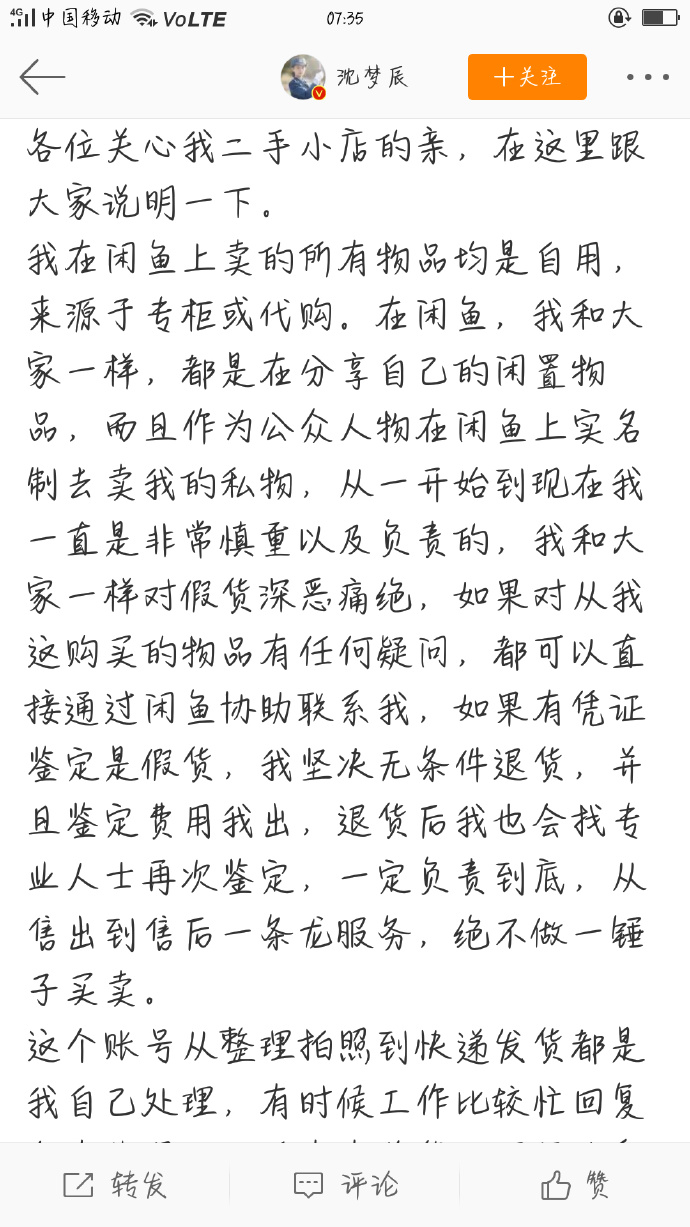 4G 中国移动 VoLTE 07:35
沈梦辰 十关注
各位关心我二手小店的亲，在这里跟
大家说明一下。
我在闲鱼上卖的所有物品均是自用，
来源于专柜或代购。在闲鱼，我和大
家一样，都是在分享自己的闲置物
品，而且作为公众人物在闲鱼上实名
制去卖我的私物，从一开始到现在我
一直是非常慎重以及负责的，我和大
家一样对假货深恶痛绝，如果对从我
这购买的物品有任何疑问，都可以直
接通过闲鱼协助联系我，如果有凭证
鉴定是假货，我坚决无条件退货，并
且鉴定费用我出，退货后我也会找专
业人士再次鉴定，一定负责到底，从
售出到售后一条龙服务，绝不做一锤
子买卖。
这个账号从整理拍照到快递发货都是
我自己处理，有时候工作比较忙回复
转发 评论 赞